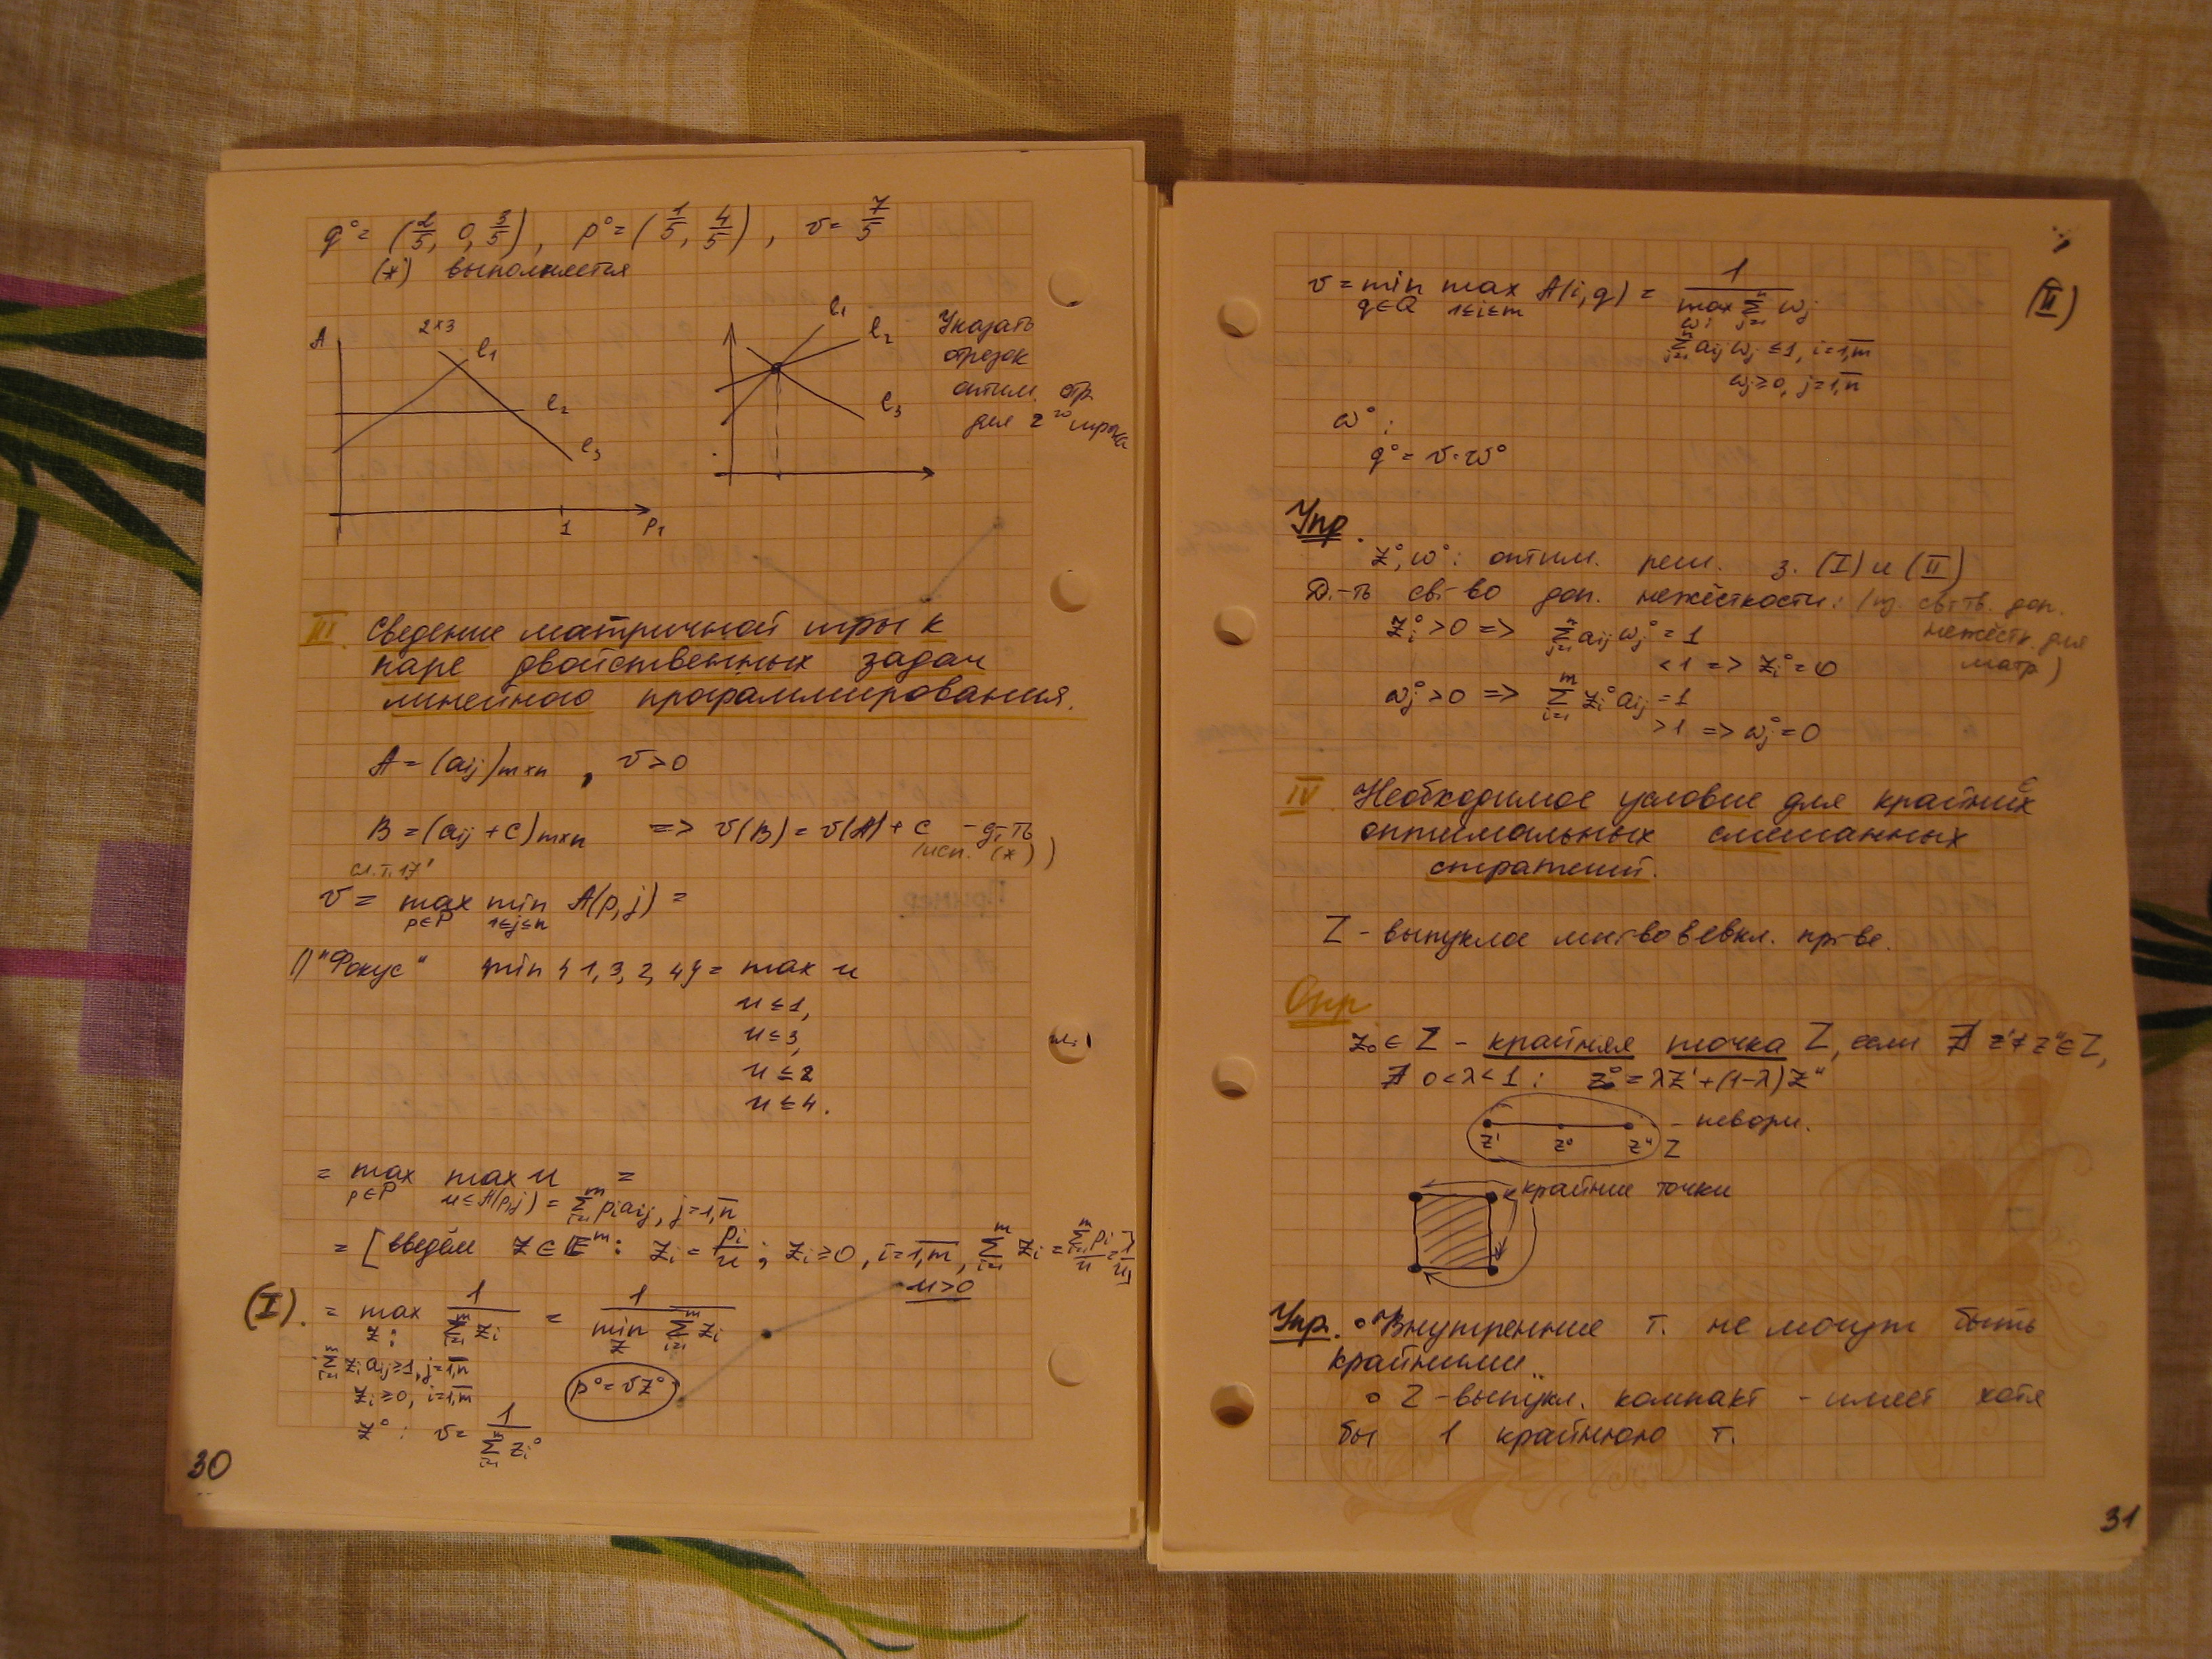 q° = (2/5, 0, 3/5), p° = (1/5, 4/5), v = 7/5
(*) выполняется
A
2×3
l₁
l₂
l₃
1
p₁
l₁
l₂
l₃
Указать
отрезок
оптим. стр.
для 2го игрока
III. Сведение матричной игры к
паре двойственных задач
линейного программирования.
A = (aij)m×n, v > 0
B = (aij + c)m×n => v(B) = v(A) + c - д-ть
(исп. (*))
сл. т. 17'
v = max p∈P min 1≤j≤n A(p, j) =
1) "Фокус" min {1, 3, 2, 4} = max u
u ≤ 1,
u ≤ 3,
u ≤ 2
u ≤ 4.
= max p∈P max u u≤A(p,j) = Σ i=1 m pi aij, j=1,n̅ =
= [введём z ∈ Eᵐ: zi = pi/u; zi ≥ 0, i=1,m̅, Σ i=1 m zi = Σ i=1 m pi/u = 1/u]
u > 0
(I). = max z: 1/Σ i=1 m zi = 1/min z Σ i=1 m zi
Σ i=1 m zi aij ≥ 1, j=1,n̅
zi ≥ 0, i=1,m̅
p° = vz°
z°: v = 1/Σ i=1 m zi°
30
v = min q∈Q max 1≤i≤m A(i, q) = 1/max ω: Σ j=1 n ωj (II)
Σ j=1 n aij ωj ≤ 1, i=1,m̅
ωj ≥ 0, j=1,n̅
ω°:
q° = v·ω°
Упр.
z°, ω°: оптим. реш. з. (I) и (II)
Д-ть св-во доп. нежёсткости: (из св-тв. доп.
нежёстк. для
матр)
zi° > 0 => Σ j=1 n aij ωj° = 1
< 1 => zi° = 0
ωj° > 0 => Σ i=1 m zi° aij = 1
> 1 => ωj° = 0
IV. Необходимое условие для крайних
оптимальных смешанных
стратегий.
Z - выпуклое мн-во в евкл. пр-ве.
Опр.
z₀ ∈ Z - крайняя точка Z, если ∄ z' ≠ z" ∈ Z,
∄ 0 < λ < 1: z° = λz' + (1-λ)z"
z' z° z" Z - невозм.
крайние точки
Упр. ∘ Внутренние т. не могут быть
крайними.
∘ Z - выпукл. компакт - имеет хотя
бы 1 крайнюю т.
31